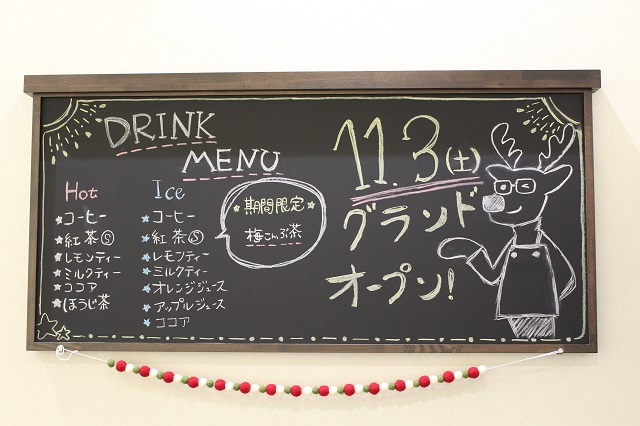 DRINK
MENU
Hot
★コーヒー
★紅茶Ⓢ
★レモンティー
★ミルクティー
★ココア
★ほうじ茶
Ice
★コーヒー
★紅茶Ⓢ
★レモンティー
★ミルクティー
★オレンジジュース
★アップルジュース
★ココア
★期間限定★
梅こんぶ茶
11.3(土)
グランド
オープン!